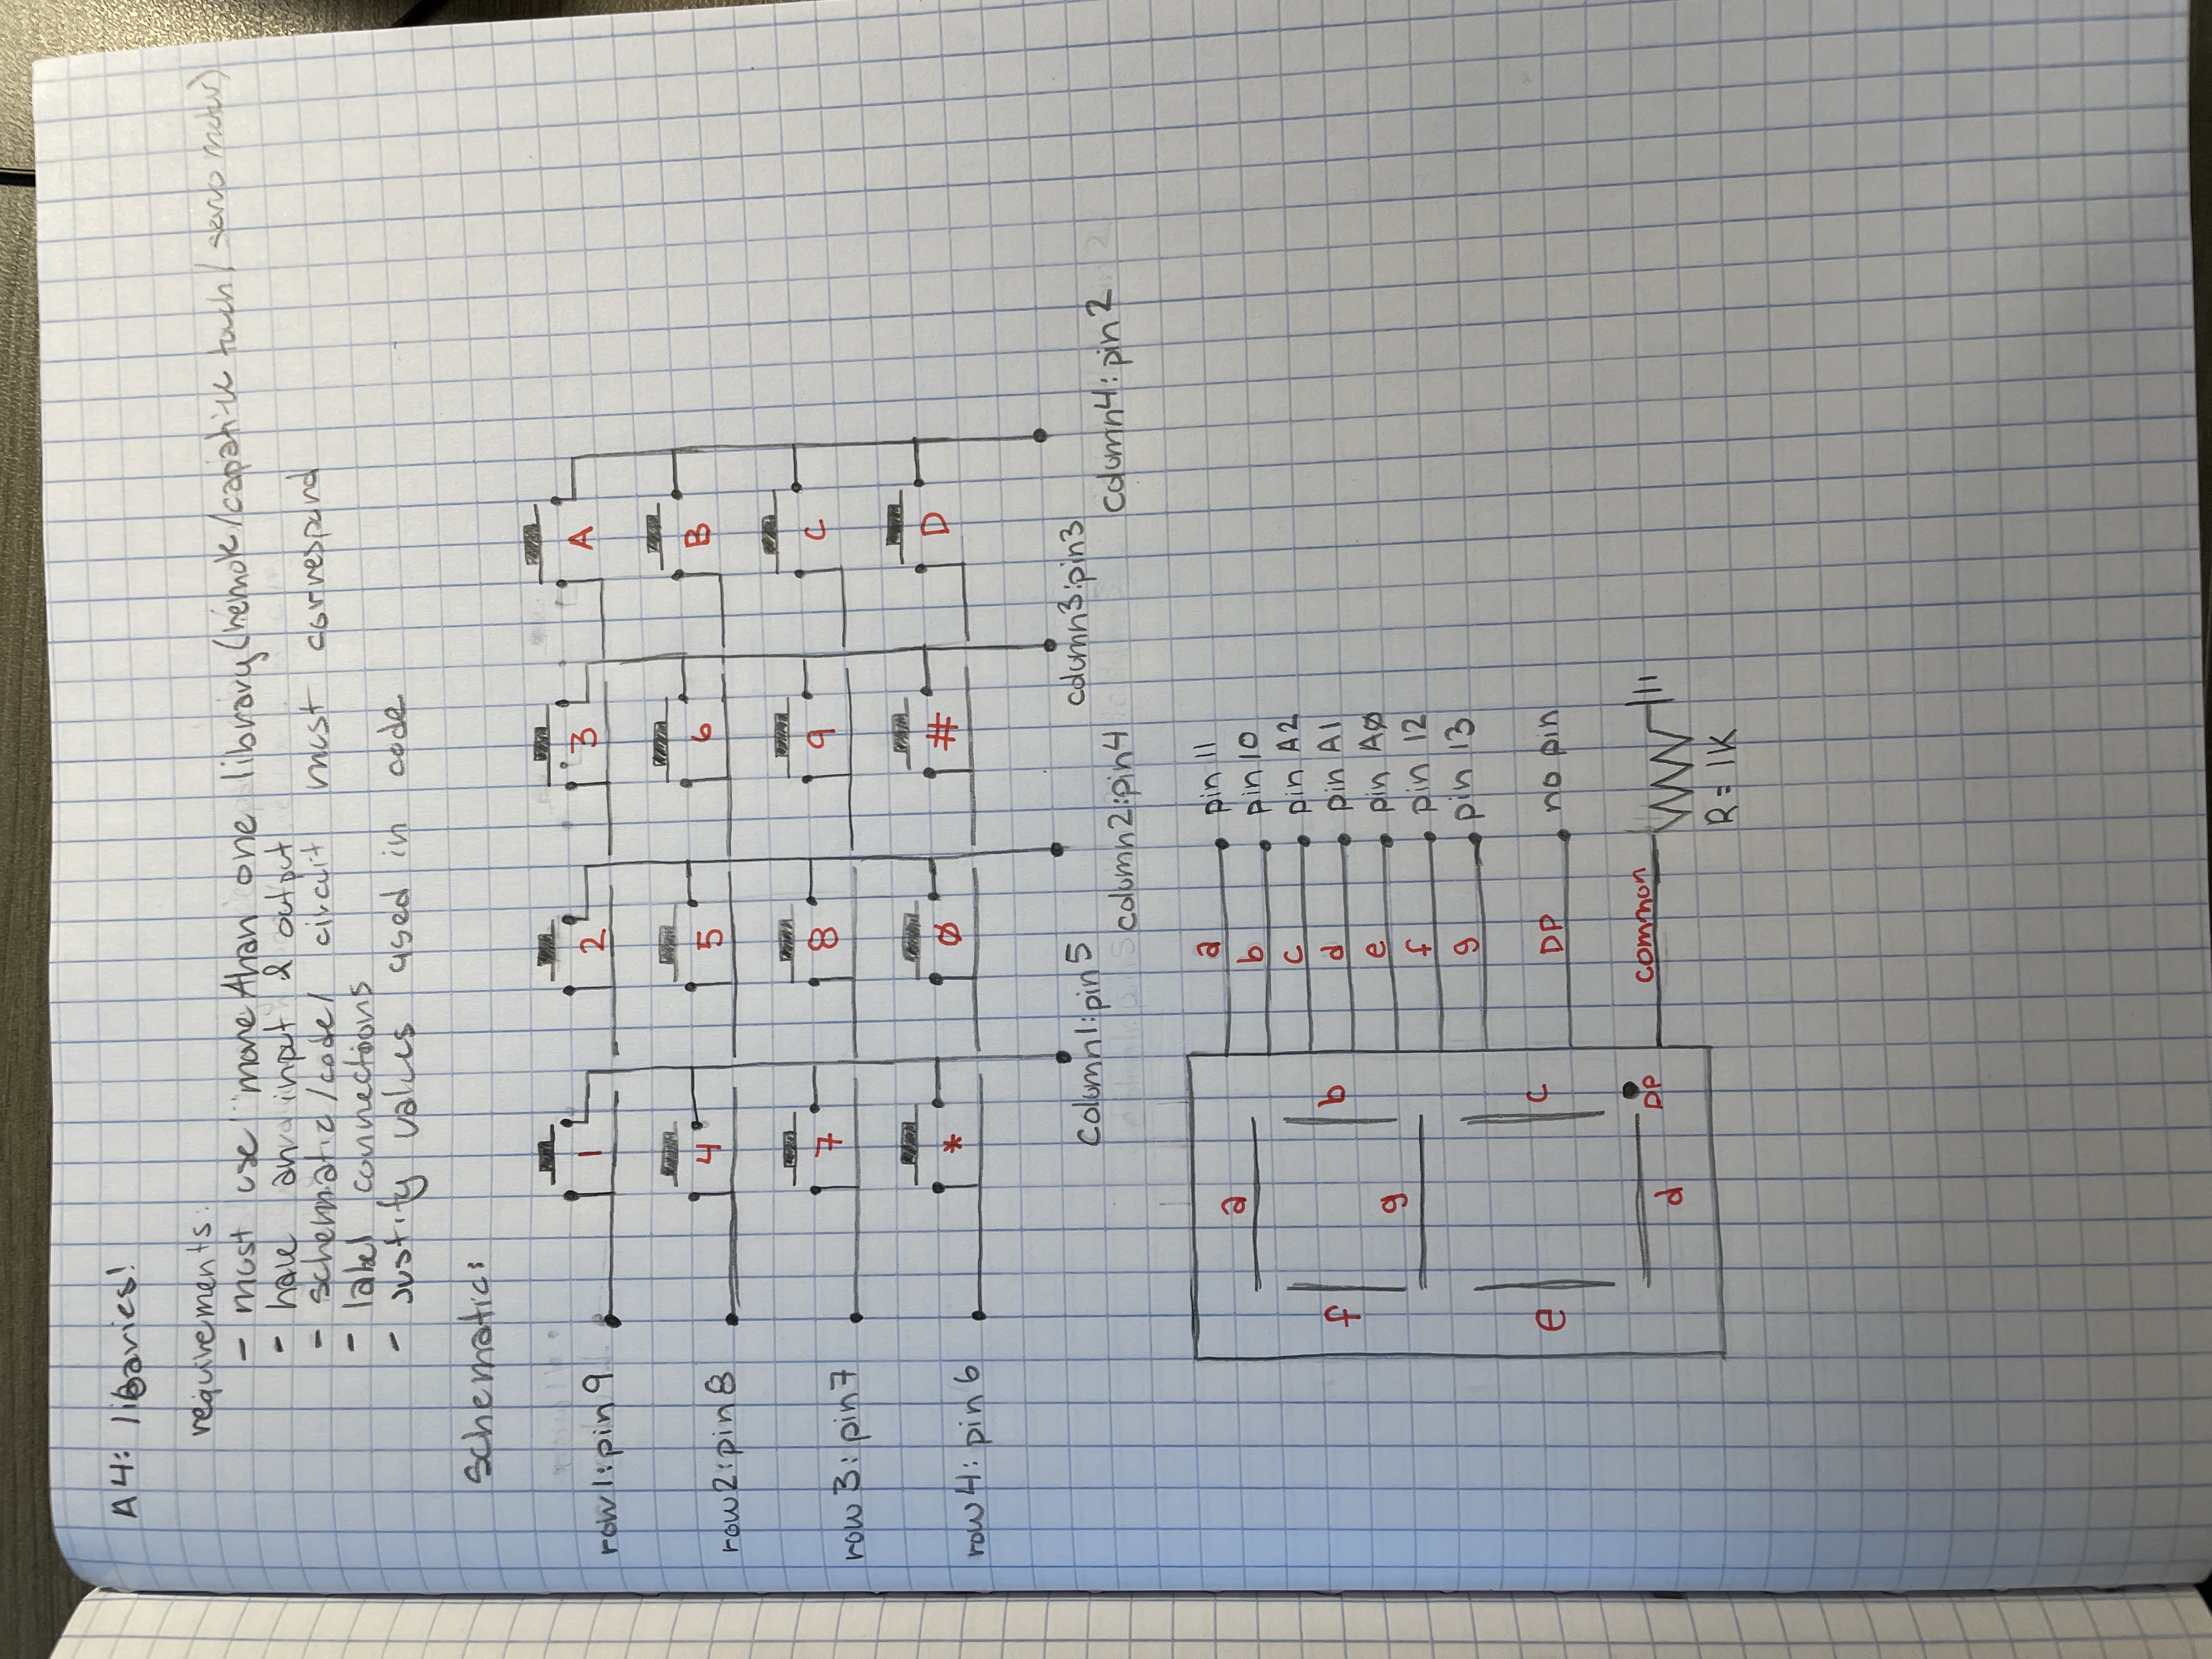 A4: libaries!
requirements:
- must use more than one library (remote/capative touch/servo motor)
- have an input & output
- schematic/code/ circuit must correspond
- label connections
- justify values used in code
schematic:
row1: pin 9
1
2
3
A
row2: pin 8
4
5
6
B
row 3: pin 7
7
8
9
C
row 4: pin 6
*
Ø
#
D
column1: pin 5
column2: pin 4
column3: pin3
column4: pin 2
a
f
b
g
e
c
d
DP
a pin 11
b pin 10
c pin A2
d pin A1
e pin AØ
f pin 12
g pin 13
DP no pin
common
R = 1K